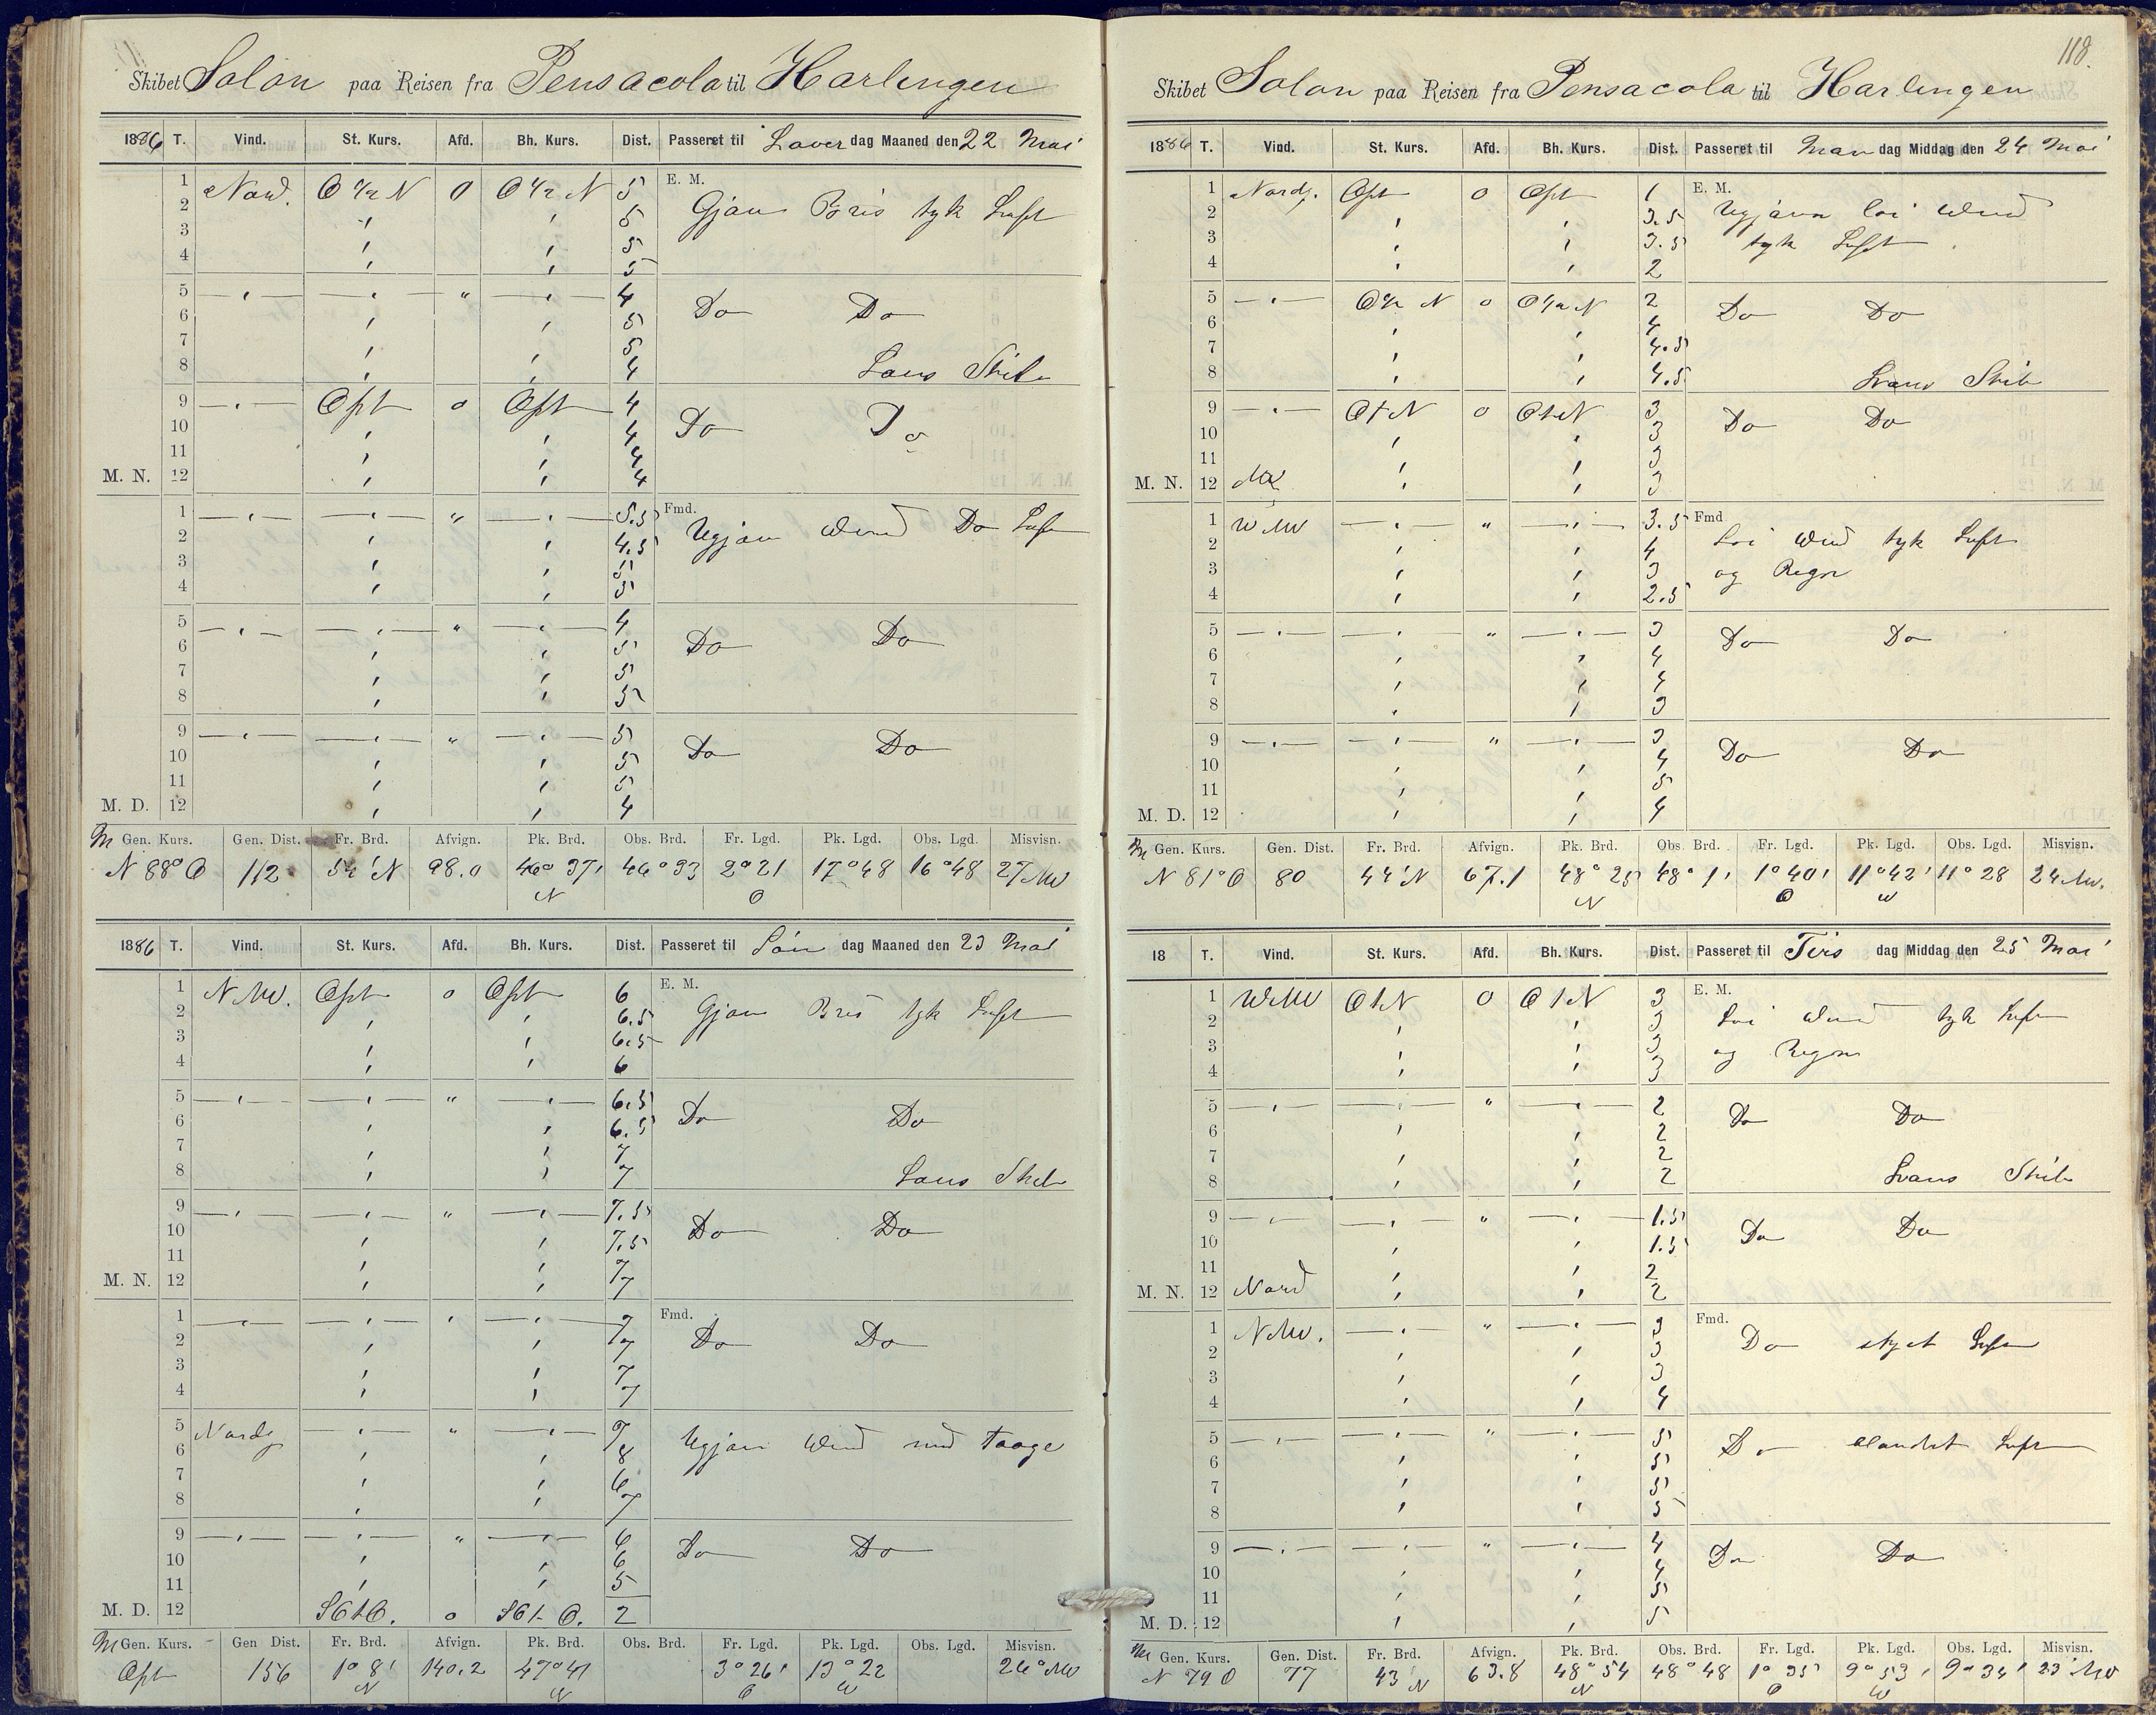 Skibet Solon paa Reisen fra Pensacola til Harlingen
1886 T. Vind. St. Kurs. Afd. Bh. Kurs. Dist. Passeret til Lover dag Maaned den 22 Mai
1 Nord. O ½ N 0 O ½ N 5 E. M.
2 " " 5 Gjävn Bris tyk Luft
3 " " 5
4 " " 5
5 " " " " 4 Do Do
6 " " 5
7 " " 5
8 " " 4 Lans Skib
9 " Ost 0 Ost 4 Do Do
10 " " 4
11 " " 4
M. N. 12 " " 4
1 " " " " 5.5 Fmd.
2 " " 4.5 Ugjävn Wind Do Luft
3 " " 5
4 " " 5
5 " " " " 4 Do Do
6 " " 5
7 " " 5
8 " " 5
9 " " " " 5 Do Do
10 " " 5
11 " " 5
M. D. 12 " " 4
M Gen. Kurs. Gen. Dist. Fr. Brd. Afvign. Pk. Brd. Obs. Brd. Fr. Lgd. Pk. Lgd. Obs. Lgd. Misvisn.
N 88° O 112 54' N 98.0 46° 37' N 46° 33 2° 21 O 17° 48 16° 48 27 NW
1886 T. Vind. St. Kurs. Afd. Bh. Kurs. Dist. Passeret til Søn dag Maaned den 23 Mai
1 N NW. Ost 0 Ost 6 E. M.
2 " " 6.5 Gjävn Bris tyk Luft
3 " " 6.5
4 " " 6
5 " " " " 6.5 Do Do
6 " " 6.5
7 " " 7
8 " " 7 Lans Skib
9 " " " " 7.5 Do Do
10 " " 7.5
11 " " 7
M. N. 12 " " 7
1 " " " " 7 Fmd.
2 " " 7 Do Do
3 " " 7
4 " " 7
5 Nordl " " " 7
6 " " 8 Ugjävn Wind med Taage
7 " " 6
8 " " 7
9 " " " " 6 Do Do
10 " " 6
11 " " 5
M. D. 12 SO t O. 0 SO t O. 2
M Gen. Kurs. Gen Dist. Fr. Brd. Afvign. Pk. Brd. Obs. Brd. Fr. Lgd. Pk. Lgd. Obs. Lgd. Misvisn.
Ost 156 1° 8' N 140.2 47° 41 N 3° 26' O 13° 22 W 26° NW
118.
Skibet Solon paa Reisen fra Pensacola til Harlingen
1886 T. Vind. St. Kurs. Afd. Bh. Kurs. Dist. Passeret til Man dag Middag den 24 Mai
1 Nordl. Ost 0 Ost 1 E. M.
2 " " 3.5 Ugjävn loi Wind
3 " " 3.5 tyk Luft
4 " " 2
5 " O ½ N 0 O ½ N 2 Do Do
6 " " 4
7 " " 4.5
8 " " 4.5 Lrans Skib
9 " O t N 0 O t N 3 Do Do
10 " " 3
11 " " 3
M. N. 12 NW " " 3
1 W NW " " " 3.5 Fmd
2 " " 4 Loi Wind tyk Luft
3 " " 3 og Regn
4 " " 2.5
5 " " " " 3 Do Do
6 " " 4
7 " " 4
8 " " 3
9 " " " " 3 Do Do
10 " " 4
11 " " 5
M. D. 12 " " 4
M Gen. Kurs. Gen. Dist. Fr. Brd. Afvign. Pk. Brd. Obs. Brd. Fr. Lgd. Pk. Lgd. Obs. Lgd. Misvisn.
N 81° O 80 44' N 67.1 48° 25 N 48° 1' 1° 40' O 11° 42' W 11° 28 24 NW.
18 T. Vind. St. Kurs. Afd. Bh. Kurs. Dist. Passeret til Tirs dag Middag den 25 Mai
1 W NW O t N 0 O t N 3 E. M.
2 " " 3 Loi Wind tyk Luft
3 " " 3 og Regn
4 " " 3
5 " " " " 2 Do Do
6 " " 2
7 " " 2
8 " " 2 Lrans Skib
9 " " " " 1.5 Do Do
10 " " 1.5
11 " " 2
M. N. 12 Nord " " 2
1 N NW. " " " 3 Fmd.
2 " " 3 Do skyet Luft
3 " " 3
4 " " 4
5 " " " " 5 Do blandet Luft
6 " " 5
7 " " 5
8 " " 5
9 " " " " 4 Do Do
10 " " 4
11 " " 5
M. D. 12 " " 5
M Gen. Kurs. Gen. Dist. Fr. Brd. Afvign. Pk. Brd. Obs. Brd. Fr. Lgd. Pk. Lgd. Obs. Lgd. Misvisn.
N 79 O 77 43 N 63.8 48° 54 N 48° 48 1° 35' O 9° 53' W 9° 34' 23° NW